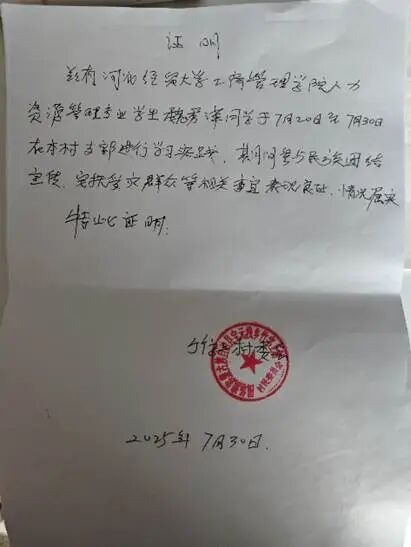 证明
兹有河北经贸大学工商管理学院人力
资源管理专业学生魏洋同学于7月20日至7月30日
在本村支部进行学习实践，期间参与民族团结
宣传、安抚受灾群众等相关事宜表现良好，情况属实
特此证明.
村委
2025年7月30日.